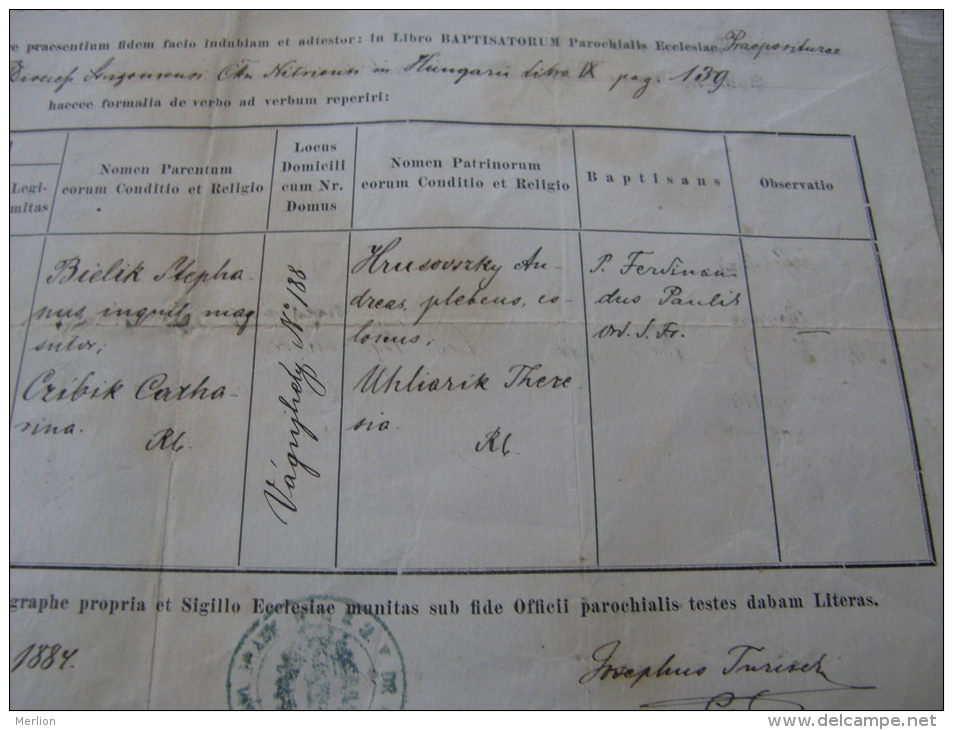 praesentium fidem facio indubiam et adtestor: in Libro BAPTISATORUM Parochialis Ecclesiae Praepositurae
Strigoniensi Cttu Nitriensi in Hungaria Libro IX pag. 139
haecce formalia de verbo ad verbum reperiri:
Legi-
mitas
Nomen Parentum
eorum Conditio et Religio
Locus
Domicili
cum Nr.
Domus
Nomen Patrinorum
eorum Conditio et Religio
Baptisans
Observatio
Bielik Stepha-
nus, inquil, mag
Czibik Catha-
rina.
Rk.
Vágujhely. No 188
Hrusovszky An-
dreas, plebeus, co-
lonus;
Uhliarik There-
sia.
Rk.
P. Ferdinan-
dus Paulis
Ord. S. Fr.
—
graphe propria et Sigillo Ecclesiae munitas sub fide Officii parochialis testes dabam Literas.
1884.
Josephus
Merlion
http://www.delcampe.net